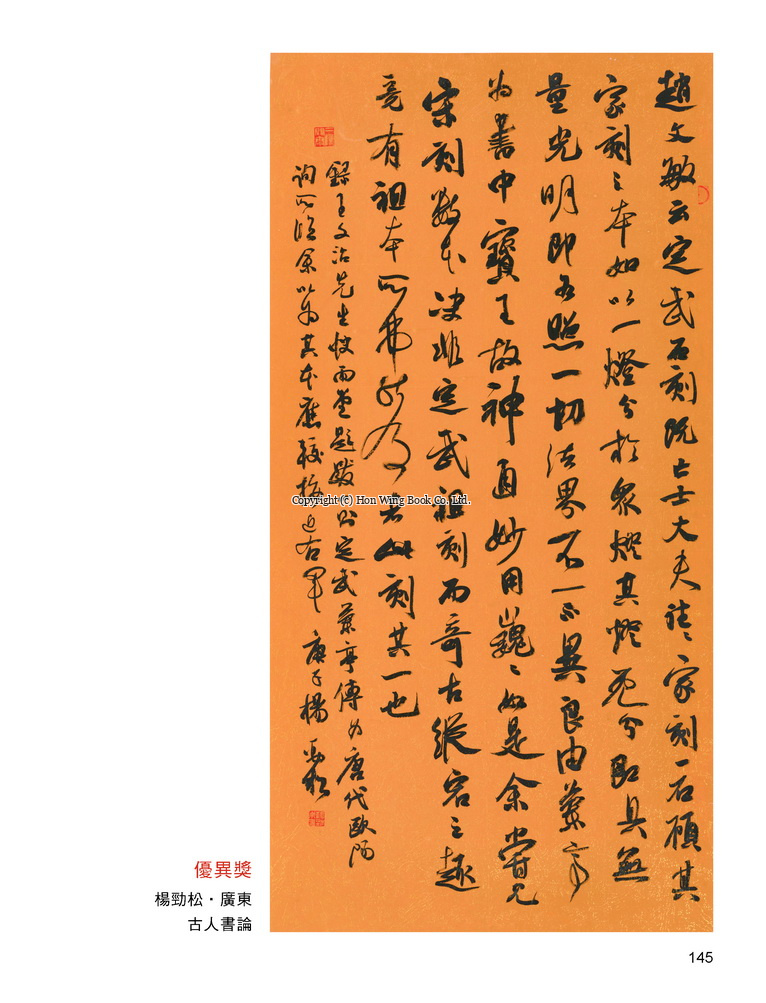 趙文敏云定武石刻既亡士大夫諸〻家刻一石頋其
家刻〻本如以一燈分於眾燈其燈雖分即具無
量光明即為照一切法界不一不異良由蘭亭
為書中寶王故神通妙用巍〻如是余嘗見
宋刻數本決非定武祖刻而奇古縱宕之趣
竟有祖本所弗能及者此刻其一也
錄王文治先生快雨堂題跋 定武蘭亭傳為唐代歐陽
詢所臨余以為其本應 近右軍 庚子楊勁松
Copyright (c) Hon Wing Book Co. Ltd.
優異獎
楊勁松・廣東
古人書論
145